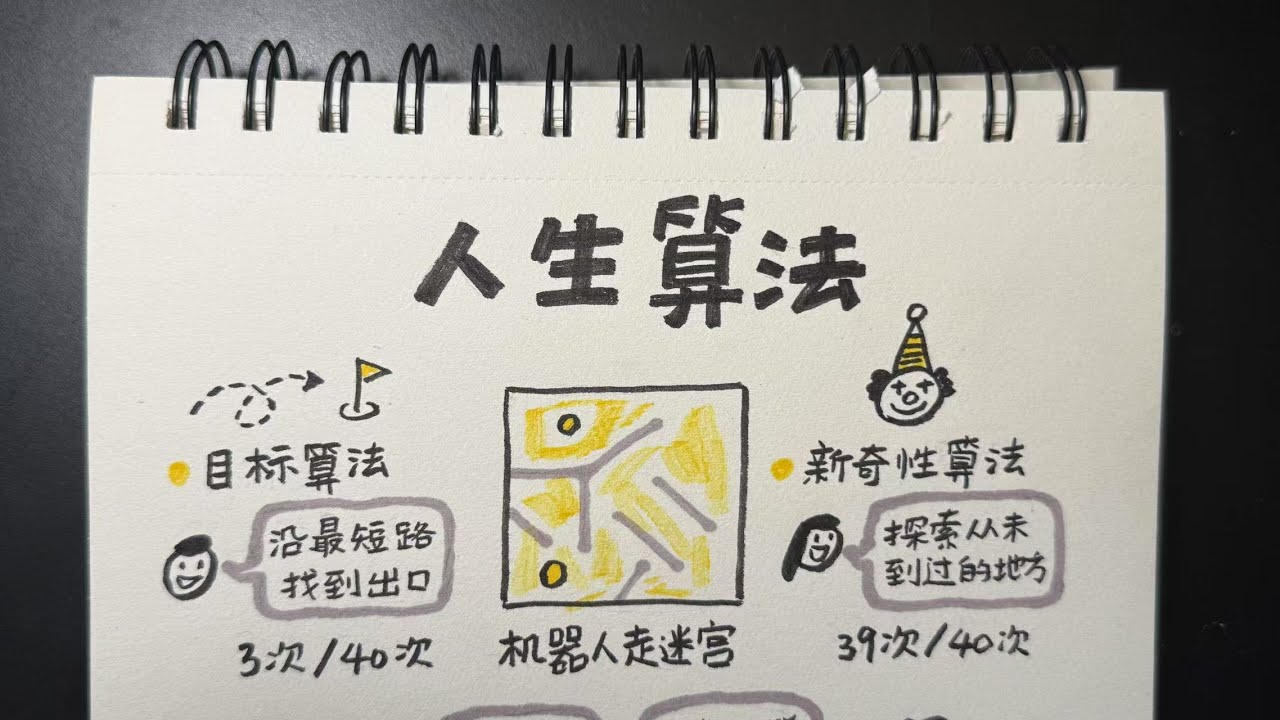 人生算法
目标算法
沿最短路
找到出口
3次/40次
机器人走迷宫
新奇性算法
探索从未
到过的地方
39次/40次